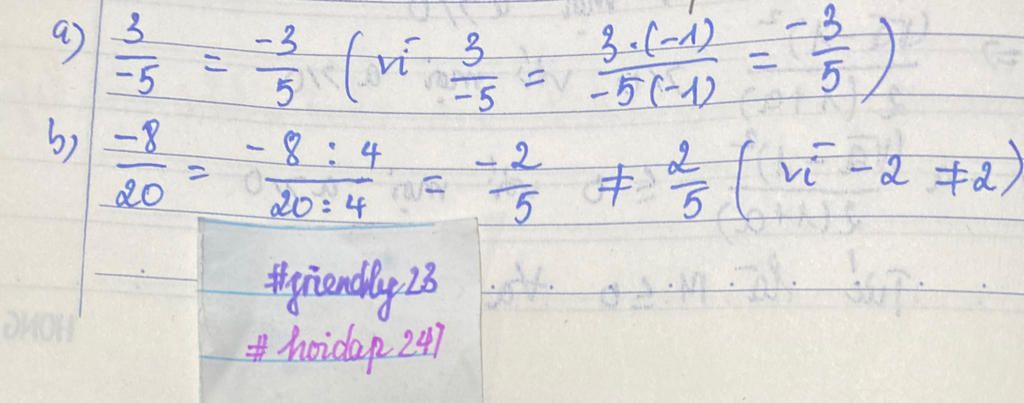 a) 3/-5 = -3/5 (vì 3/-5 = 3.(-1)/-5(-1) = -3/5)
b) -8/20 = -8:4/20:4 = -2/5 ≠ 2/5 (vì -2 ≠ 2)
#friendly23
#hoidap247